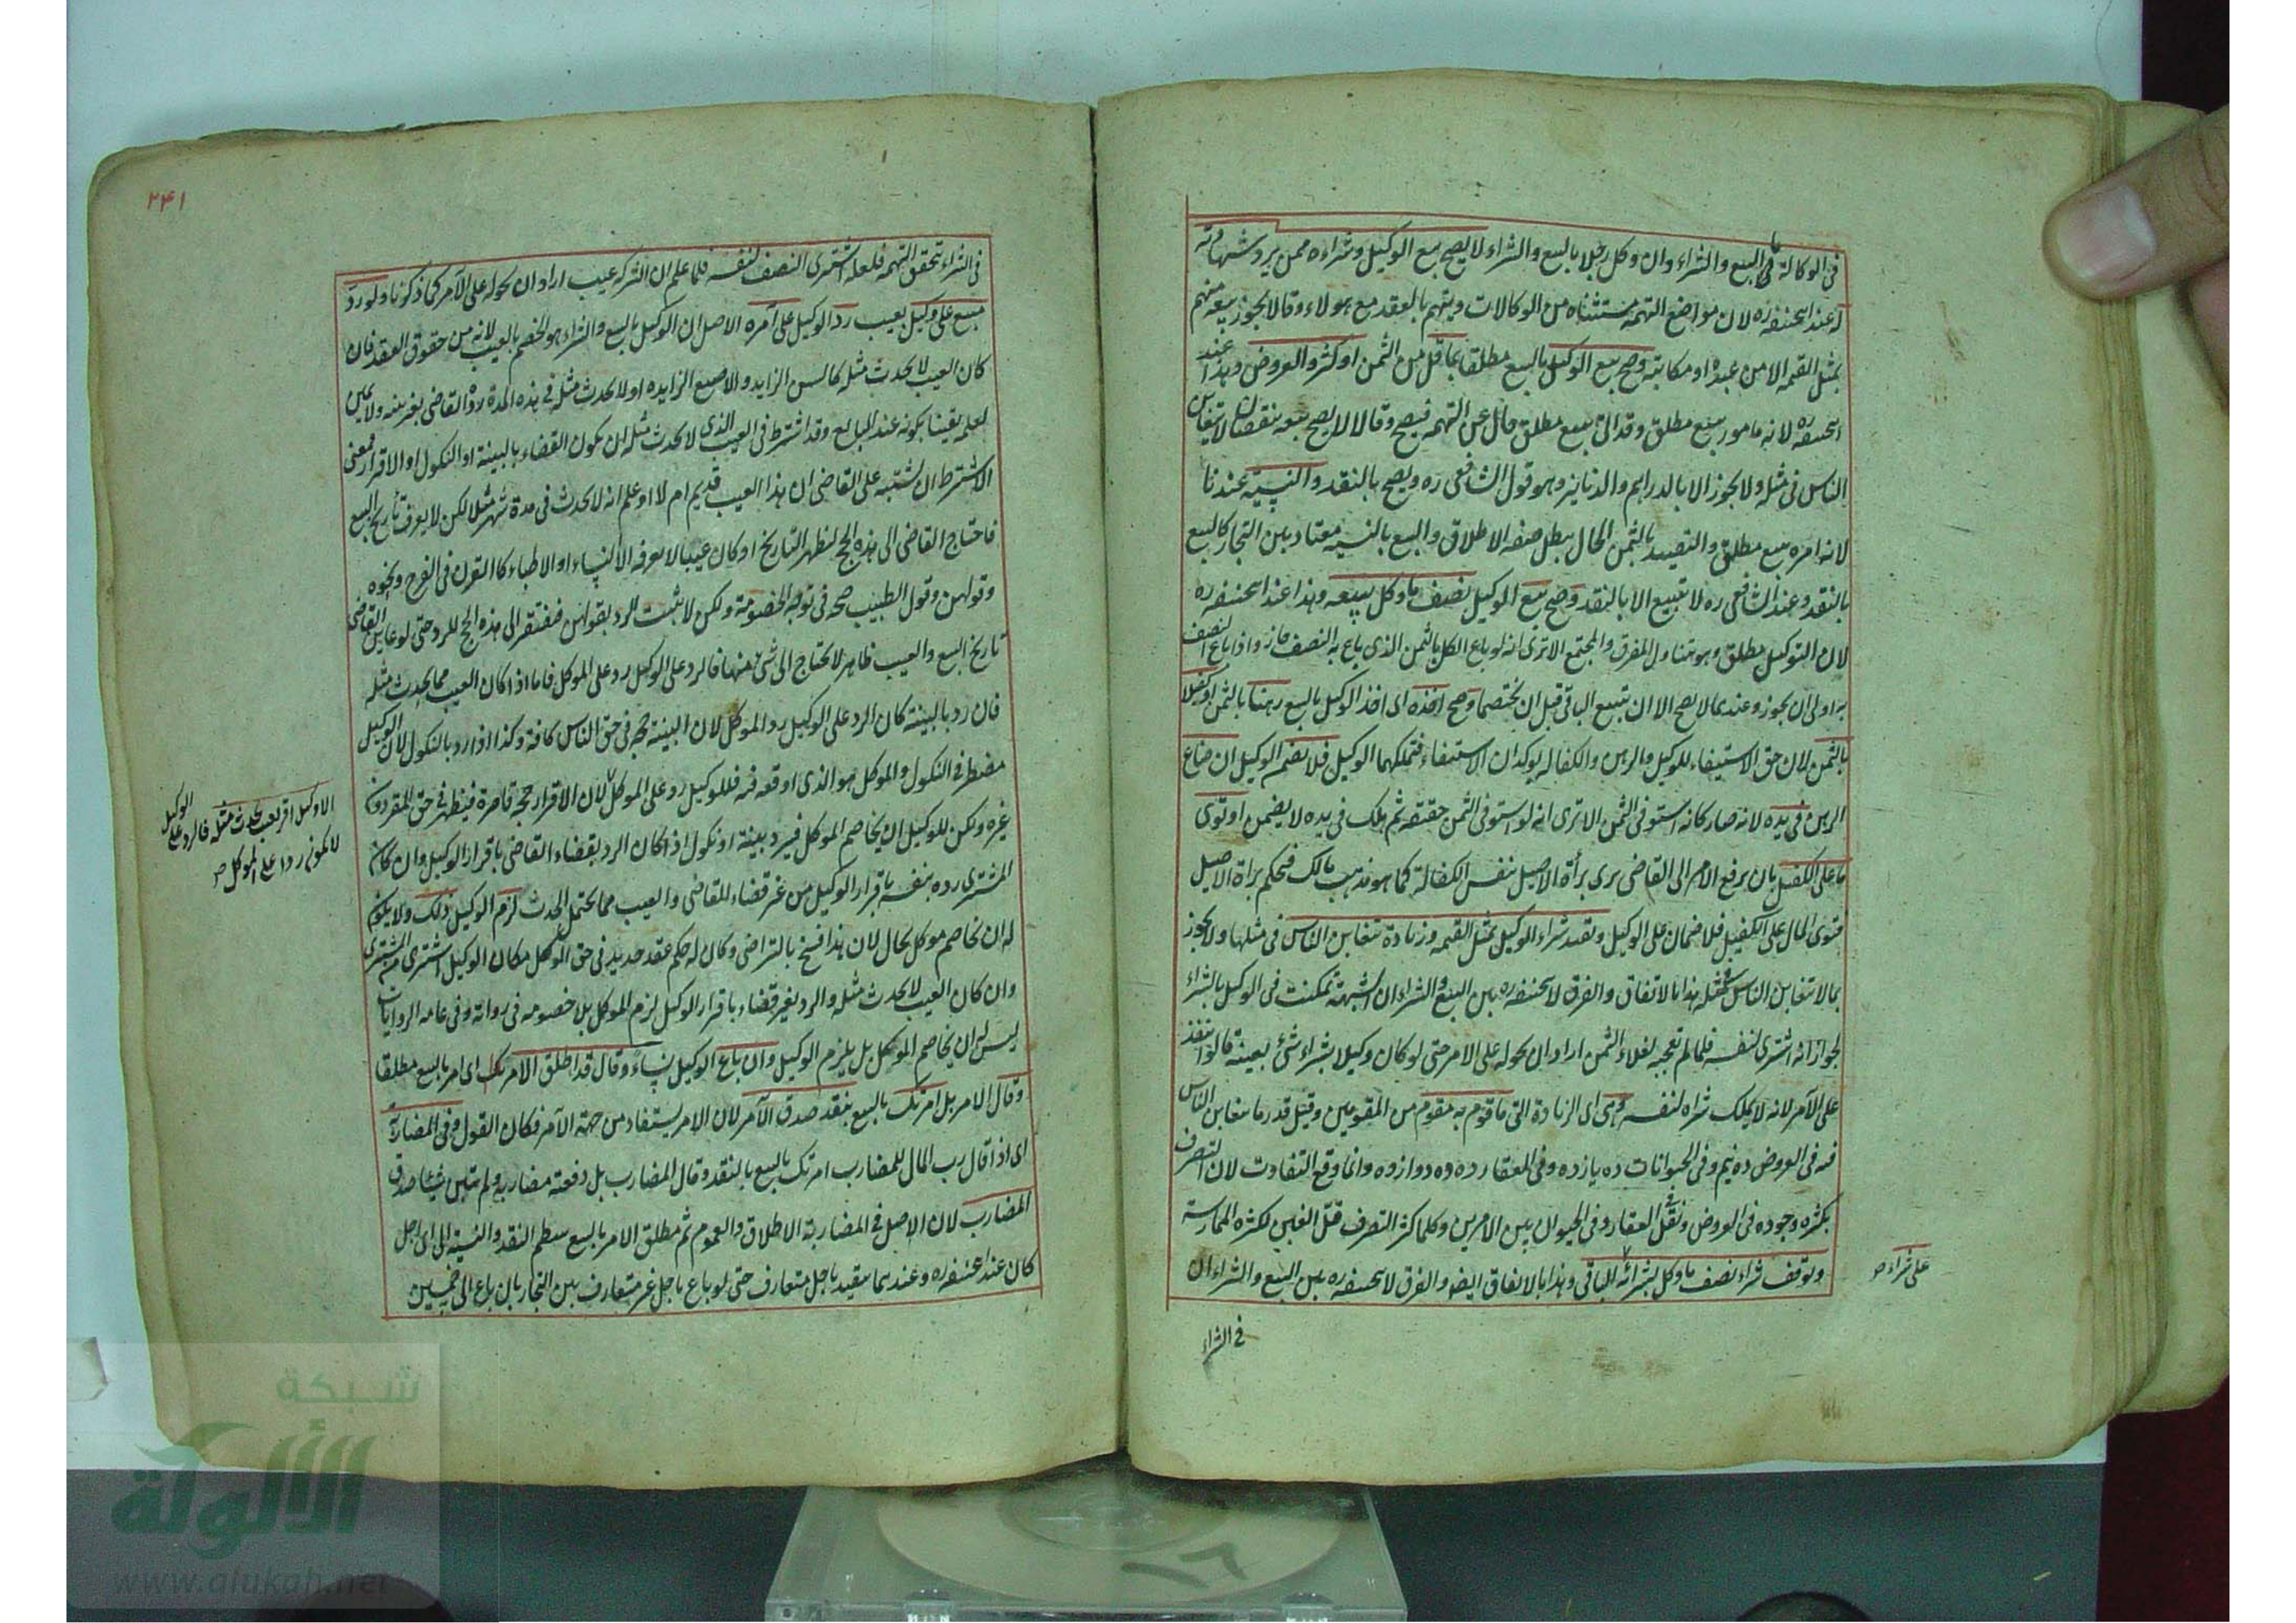 في الوكالة في البيع والشراء وان وكل رجلا بالبيع والشراء لا يصح بيع الوكيل وشراءه ممن يرد شهادته
له عند ابحنيفه ره لان مواضع التهمه مستثناه من الوكالات ويتهم بالعقد مع هولاء وقالا يجوز بيعه منهم
بمثل القيمه الا من عبده او مكاتبه وصح بيع الوكيل بالبيع مطلقا بما قل من الثمن او كثر والعروض وهذا عند
ابحنيفه ره لانه مامور ببيع مطلق وقد اتى ببيع مطلق خال عن التهمه فيصح وقالا لا يصح بيعه بنقصان لا يتغابن
الناس في مثله ولا يجوز الا بالدراهم والدنانير وهو قول الشافعي ره ويصح بالنقد والنسيئه عندنا
لانه امره ببيع مطلق والتقييد بالثمن الحال يبطل صفه الاطلاق والبيع بالنسيه معتاد بين التجار كالبيع
بالنقد وعند الشافعي ره لا يبيع الا بالنقد وصح بيع الوكيل نصف ما وكل ببيعه وهذا عند ابحنيفه ره
لان التوكيل مطلق وهو يتناول المفرق والمجتمع الا ترى انه لو باع الكل بالثمن الذي باع به النصف جاز واذا باع النصف
به اولى ان يجوز وعندهما لا يصح الا ان يبيع الباقي قبل ان يختصما وصح اخذه اى اخذ الوكيل بالبيع رهنا بالثمن او كفيلا
بالثمن لان حق الاستيفاء للوكيل والرهن والكفاله يوكدان الاستيفاء فتملكهما الوكيل فلا يضم الوكيل ان ضاع
الرهن في يده لانه صار كانه استوفى الثمن الا ترى انه لو استوفى الثمن حقيقه ثم هلك في يده لا يضمن او توى
ما على الكفيل بان يرفع الامر الى القاضى يرى براءة الاصيل بنفس الكفالة كما هو مذهب مالك فيحكم براة الاصيل
فتوى المال على الكفيل فلا ضمان على الوكيل وتقيد شراء الوكيل بمثل القيمه وزيادة يتغابن الناس في مثلها ولا يجوز
بما لا يتغابن الناس في مثله هذا بالاتفاق والفرق لابحنيفه ره بين البيع والشراء ان الشبهة تمكنت في الوكيل بالشراء
لجواز انه اشترى لنفسه فلما لم تعجبه لغلاء الثمن اراد ان يحوله على الامر حتى لو كان وكيلا بشراء شئ بعينه قالوا ينفذ
على الآمر لانه لا يملك شراه لنفسه وهى اى الزيادة التى ما قوم به مقوم من المقومين وقيل قدر ما يتغابن الناس
فيه في العروض ده نيم وفي الحيوانات ده يازده وفي العقار ده دوازده وانما وقع التفاوت لان التصرف
يكثره وجوده في العروض ويقل في العقار وفي الحيوان بين الامرين وكلما كثر التصرف قل الغبن لكثره الممارسة
وتوقف شراء نصف ما وكل بشرائه الباقي وهذا بالاتفاق ايضه والفرق لابحنيفه ره بين البيع والشراء ان
على شراء صح
في الشراء
۲۴۱
في الشراء تحقق التهمه فلعله اشترى النصف لنفسه فلما علم ان الشركه عيب اراد ان يحوله على الآمر كما ذكرنا ولو رد
مبيع على وكيل بعيب رد الوكيل على آمره الاصل ان الوكيل بالبيع والشراء هو الخصم بالعيب لانه من حقوق العقد فان
كان العيب لا يحدث مثله كالسن الزايد والاصبع الزايده او لا يحدث مثله في هذه المدة رده القاضى بغير بينه ولا يمين
لعلمه يقينا بكونه عند البايع وقد اشترط في العيب الذي لا يحدث مثله ان يكون القضاء بالبينة او النكول او الاقرار فمعنى
الاشتراط ان يشتبه على القاضى ان هذا العيب قديم ام لا او علم انه لا يحدث في مدة شهر مثلا لكن لا يعرف تأريخ البيع
فاحتاج القاضى الى هذه الحجج ليظهر التاريخ او كان عيبا لا يعرفه الا النساء او الاطباء كالقرن في الفرج ونحوه
وقولهن وقول الطبيب حجه في توجه الخصومة ولكن لا يثبت الرد بقولهن فيفتقر الى هذه الحجج للرد حتى لو عاين القاضى
تاريخ البيع والعيب ظاهر لا يحتاج الى شئ منها فالرد على الوكيل رد على الموكل فاما اذا كان العيب مما يحدث مثله
فان رد بالبينة كان الرد على الوكيل رد الموكل لان البينة حجه في حق الناس كافة وكذا اذا رد بالنكول لان الوكيل
مضطر في النكول والموكل هو الذى اوقعه فيه فللوكيل رد على الموكل لان الاقرار حجه قاصرة فيظهر في حق المقر دون
غيره ولكن للوكيل ان يخاصم الموكل فيرد ببينة او نكول اذا كان الرد بقضاء القاضى باقرار الوكيل وان كان
المشترى رده بنفسه باقرار الوكيل من غير قضاء القاضى والعيب مما يحتمل الحدث لزم الوكيل ذلك ولا يكون
له ان يخاصم موكل بحال لان هذا فسخ بالتراضى وكان له حكم عقد جديد في حق الموكل فكان الوكيل اشترى من المشترى
وان كان العيب لا يحدث مثله والرد بغير قضاء باقرار الوكيل لزم الموكل بلا خصومه في رواية وفي عامه الروايات
ليس له ان يخاصم الموكل بل يلزم الوكيل وان باع الوكيل نساء وقال قد اطلق الامر لك اى امر بالبيع مطلقا
وقال الامر بل امرتك بالبيع بنقد صدق الآمر لان الامر يستفاد من جهة الآمر فكان القول وفي المضاربة
اى اذا قال رب المال للمضارب امرتك بالبيع بالنقد وقال المضارب بل دفعته مضاربه ولم تبين شيئا صدق
المضارب لان الاصل في المضاربة الاطلاق والعموم ثم مطلق الامر بالبيع ينتظم النقد والنسيئه الى اى اجل
كان عند ابحنيفه ره وعندهما يتقيد باجل متعارف حتى لو باع باجل غير متعارف بين التجار بان باع الى خمسين
الا وكيل اقر بعيب يحدث مثله فالرد على الوكيل
لا يكون ردا على الموكل صح
شبكة
الألوكة
www.alukah.net